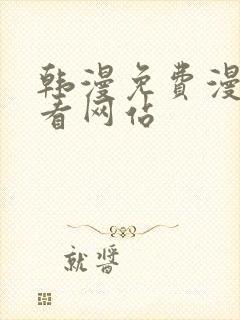 韩漫免费漫
看网佔
就酱